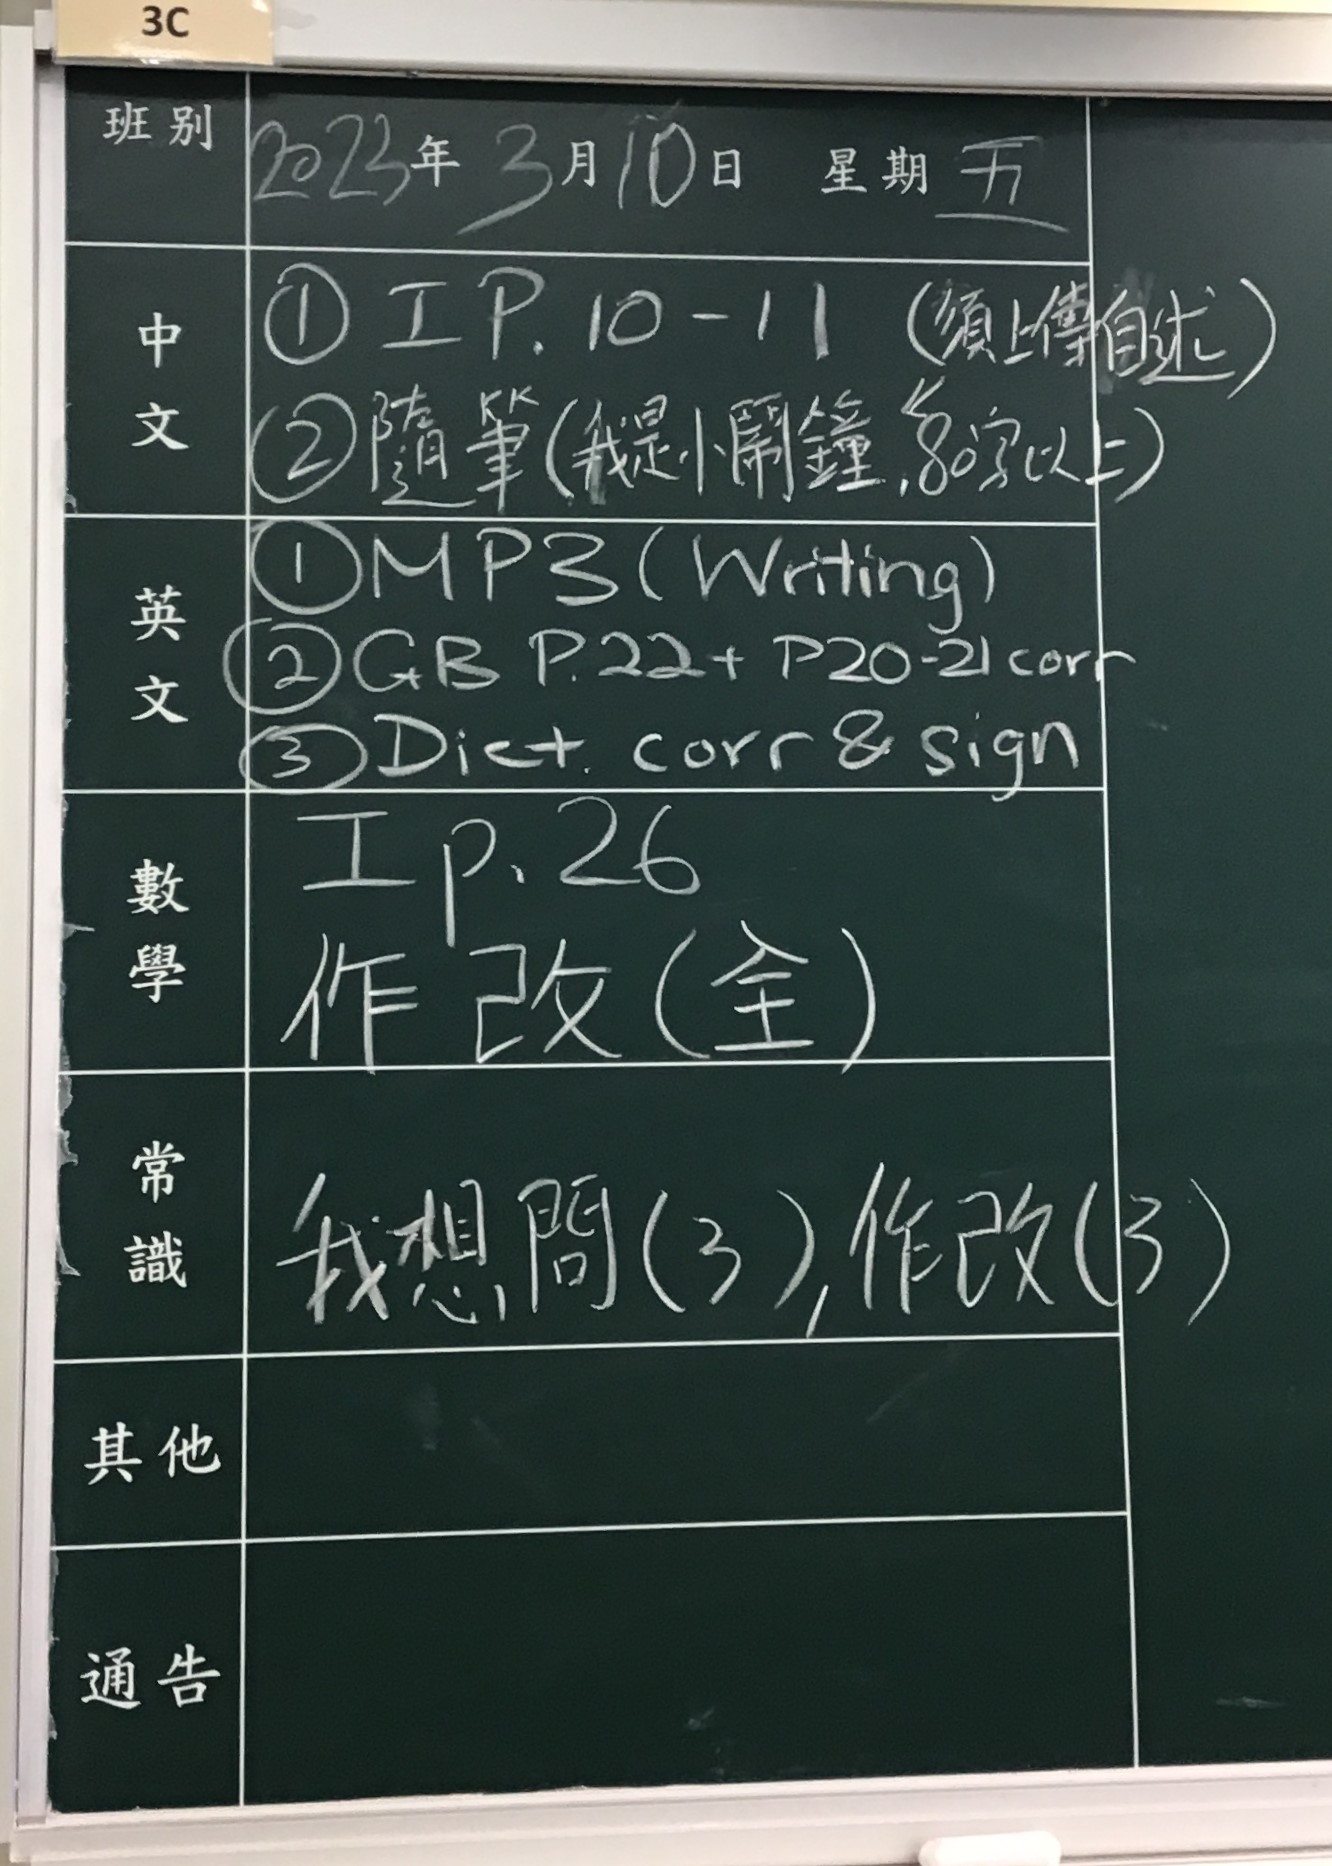 3C
班別 2023年 3月10日 星期 五
中文
① I P. 10-11 (須上傳自述)
② 隨筆(我是小鬧鐘,80字以上)
英文
① MP3 (Writing)
② GB P.22+ P20-21 corr
③ Dict. corr & sign
數學
I p. 26
作改(全)
常識
我想問(3),作改(3)
其他
通告